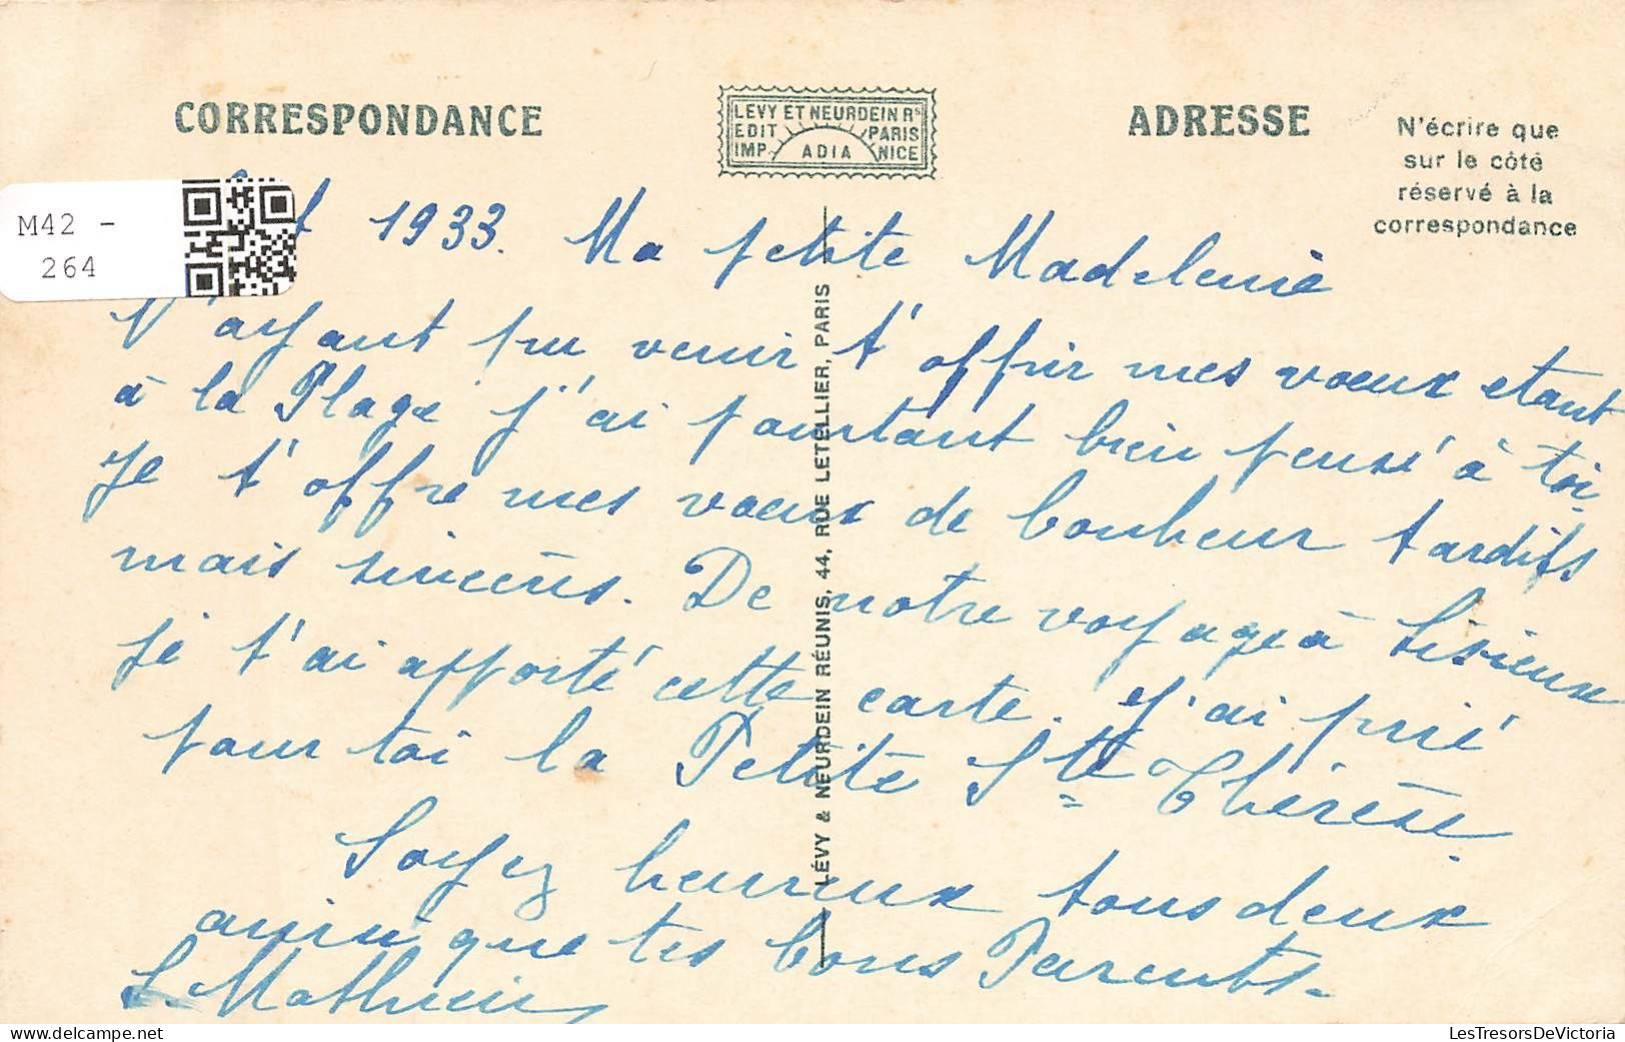 CORRESPONDANCE
LEVY ET NEURDEIN Rs
EDIT PARIS
IMP. ADIA NICE
ADRESSE
N'écrire que
sur le côté
réservé à la
correspondance
M42 -
264
1933. Ma petite Madeleine
N'ayant pu venir t'offrir mes vœux etant
à la Plage j'ai pourtant bien pensé à toi
je t'offre mes vœux de bonheur tardifs
mais sincères. De notre voyage à Lisieux
je t'ai apporté cette carte. J'ai prié
pour toi la Petite Ste Thérèse.
Soyez heureux tous deux
ainsi que tes bons Parents.
L. Mathieu
LÉVY & NEURDEIN RÉUNIS, 44, RUE LETELLIER, PARIS
LesTresorsDeVictoria